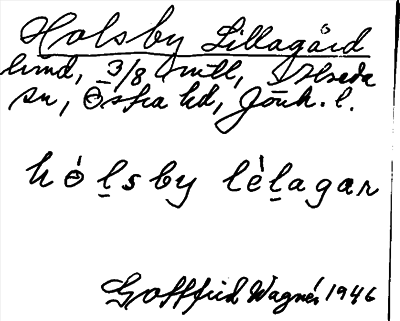 Holsby Lillagård
hmd, 3/8 mtl, Alseda
sn, Östra hd, Jönk. l.
hó̱ḻsby lèḻagar
Gottfrid Wagnér 1946